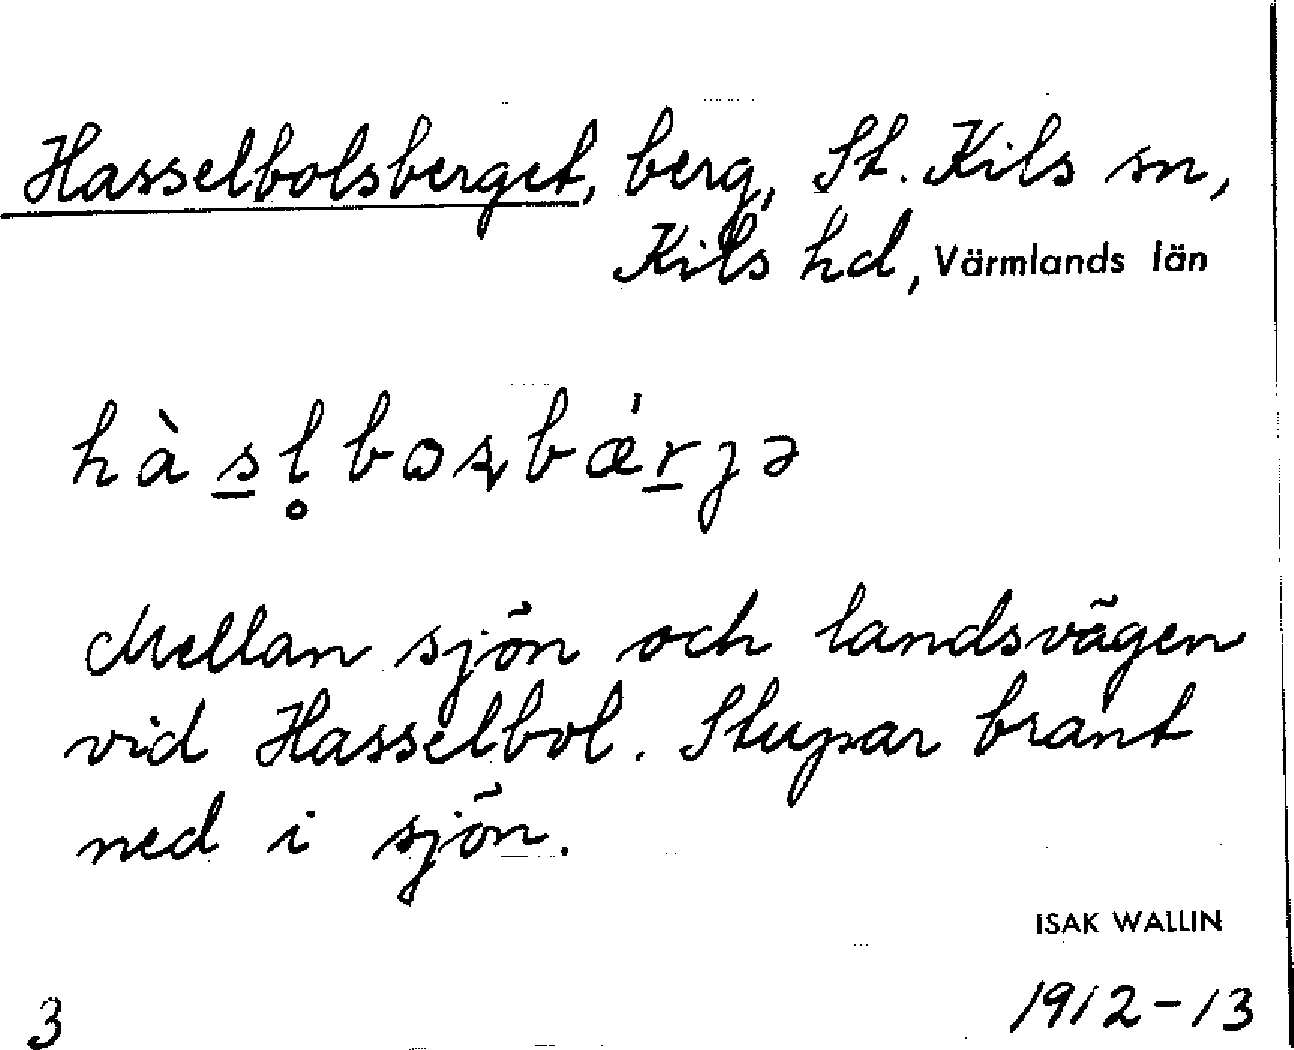 Hasselbolsberget, berg, St. Kils sn,
Kils hd, Värmlands län
hàs̱l̥bɷʂbæ̀ṟɟə
Mellan sjön och landsvägen
vid Hasselbol. Stupar brant
ned i sjön.
ISAK WALLIN
3 1912-13